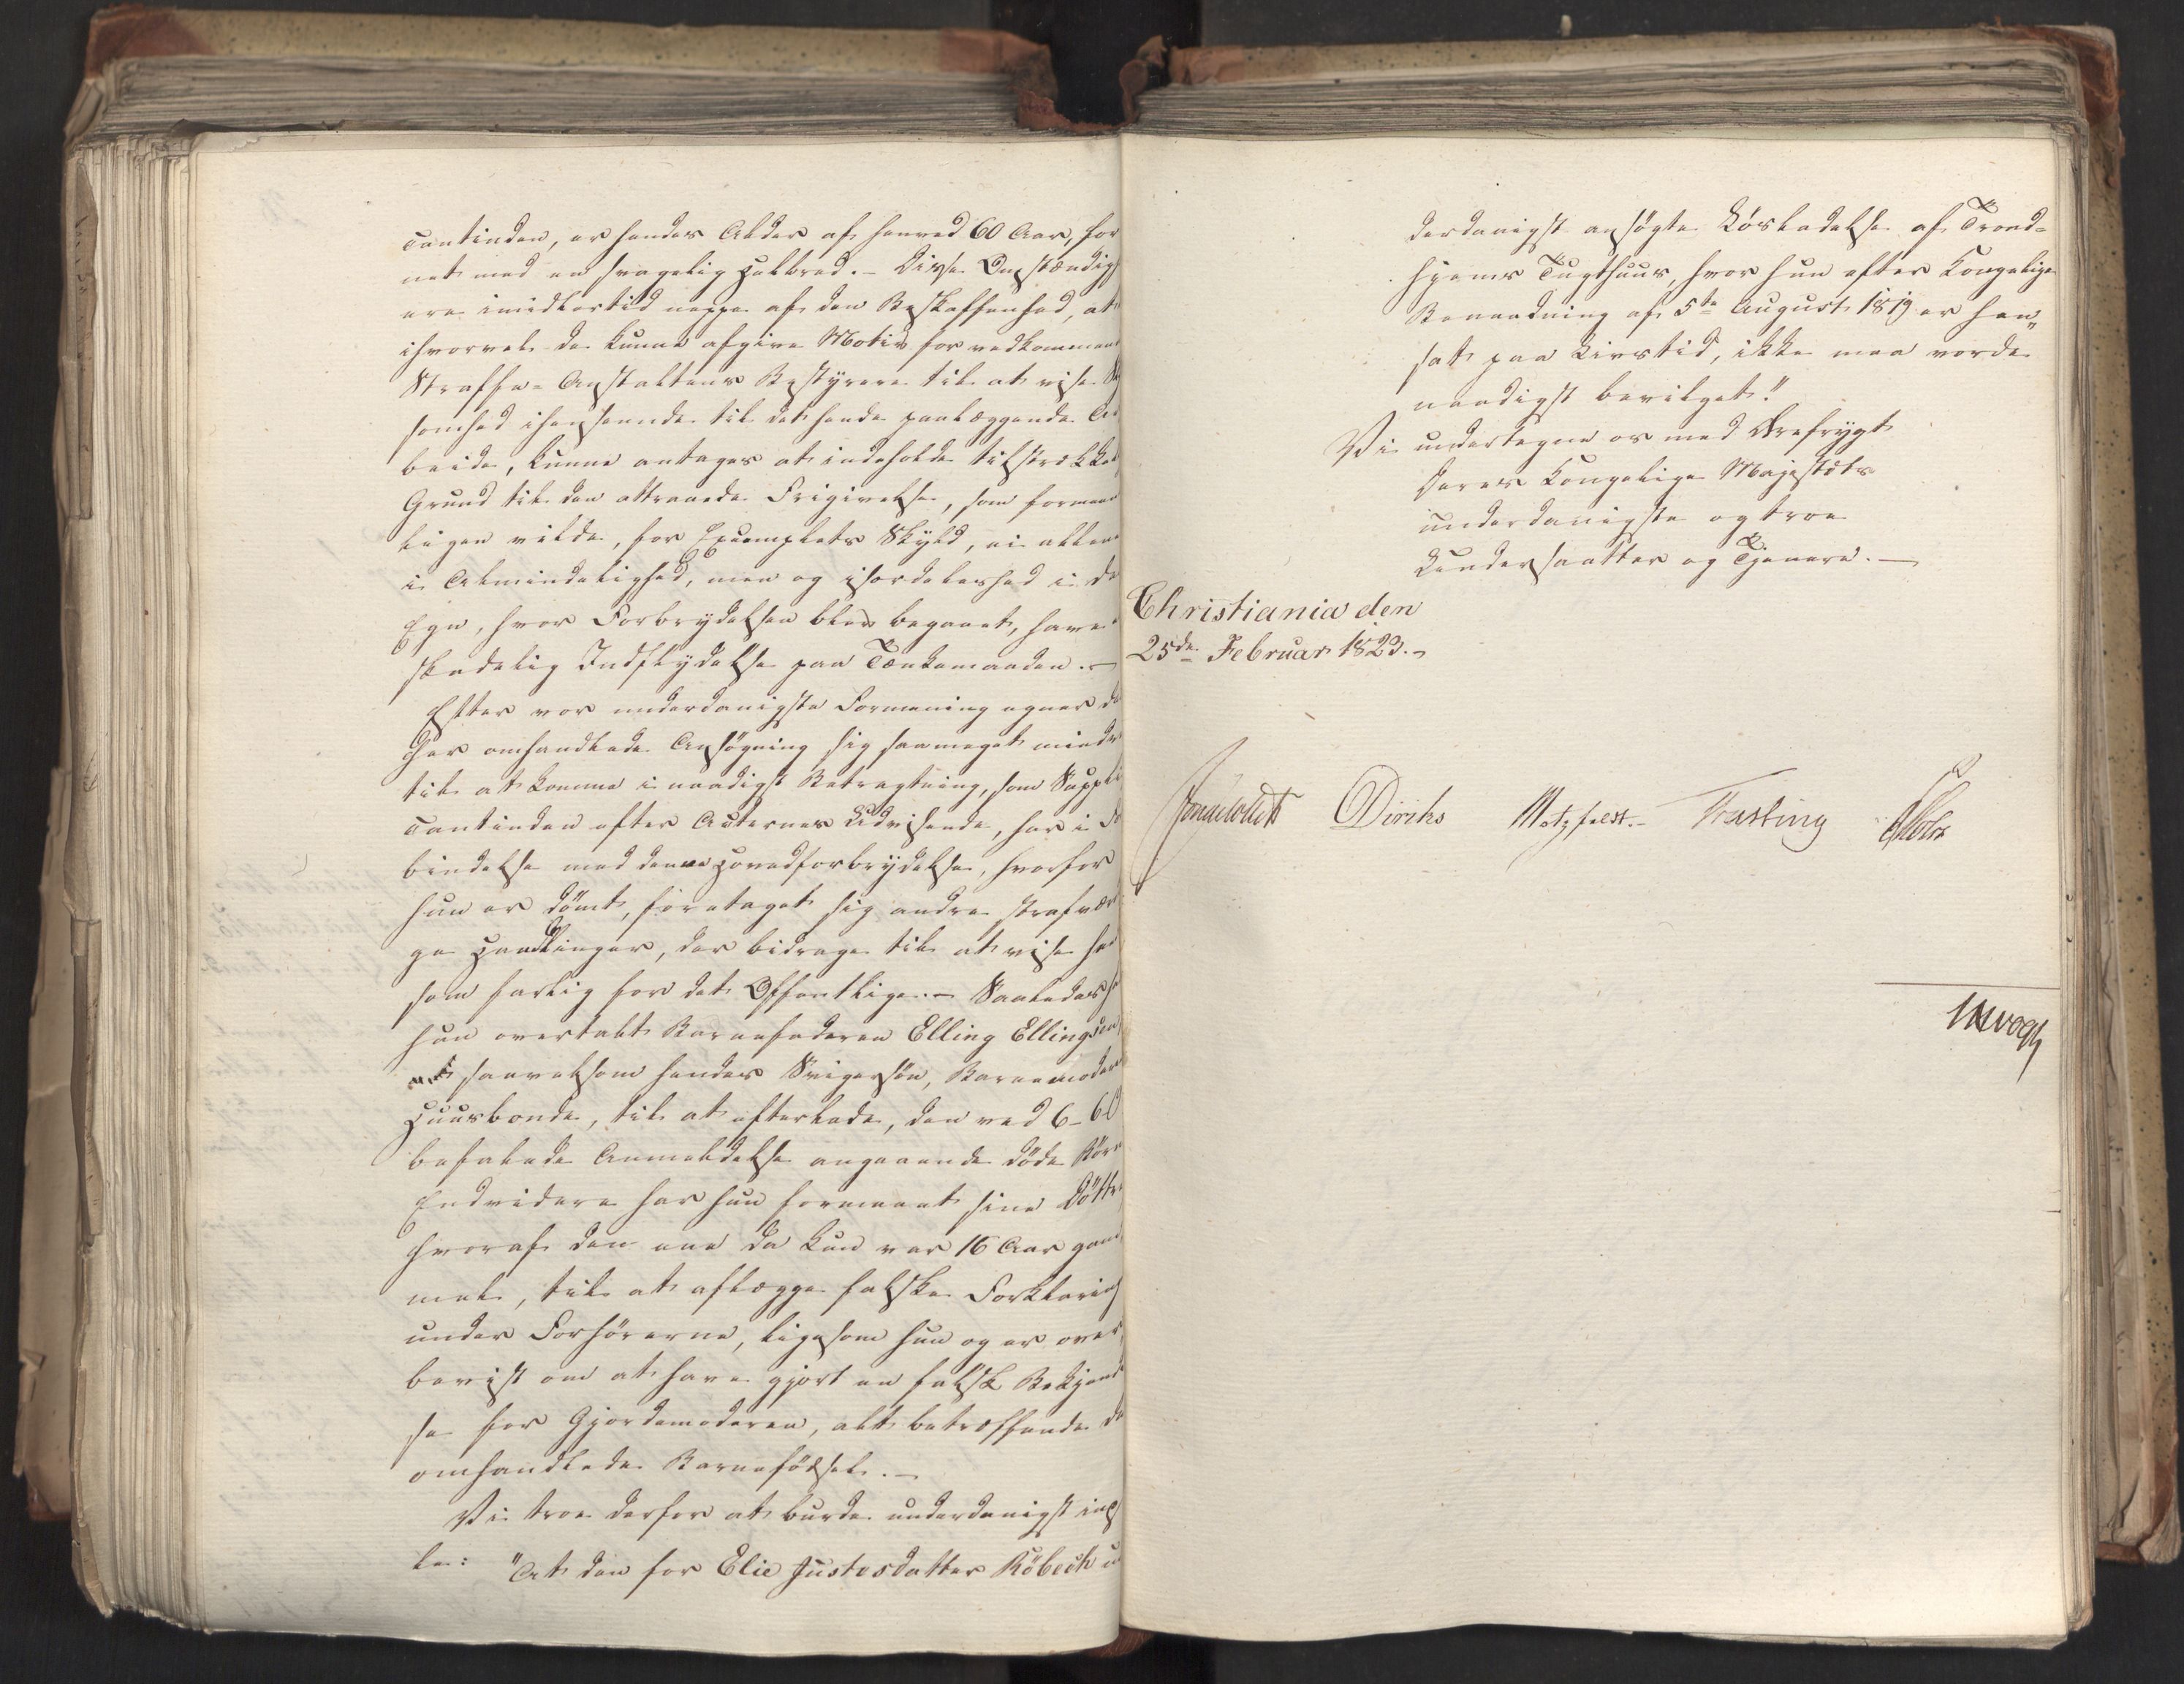 cantinden, er hendes Alder af henved 60 Aar, for
net med en svagelig Helbred. – Disse Omstændig
ere imidlertid neppe af den Beskaffenhed, at
ihvorvel de kunne afgive Motiv for vedkommen
Straffe-Anstalters Bestyrere til at vise Sk
somhed ihenseende til det hende paalæggende Ar
beide, kunne antages at indeholde tilstrækkel
Grund til den attraaede Frigivelse, som formeen
ligen vilde, for Exemplets Skyld, ei allene
i Almindelighed, men og isærdeleshed i de
Egn, hvor Forbrydelsen blev begaaet, have
skadelig Indflydelse paa Tænkemaaden. –
Efter vor underdanigste Formening egner de
her omhandlede Ansøgning sig saameget mindr
til at komme i naadigst Betragtning, som Suppli
cantinden efter Acternes Udvisende, har i Fo
bindelse med denne Hovedforbrydelse, hvorfor
hun er dømt, foretaget sig andre strafvær
ge Handlinger, der bidrage til at vise hen
som farlig for det Offentlige. – Saaledes h
hun overtalt Barnefaderen Elling Ellingsen
saavelsom hendes Svigersøn, Barnemoder
Huusbonde, til at efterlade, den ved 6–6
befalede Anmeldelse angaaende døde Bör
Endvidere har hun formaaet sine Döttr
hvoraf den ene da kun var 16 Aar gam
mel, til at aflægge falske Forklaring
under Forhörerne, ligesom hun og er over
beviist om at have gjort en falsk Bekjend
se for Gjordemoderen, alt betræffende de
omhandlede Barnefödsel. –
Vi troe derfor at burde underdanigst inds
le: "At den for Elie Justesdatter Röbech u
derdanigst ansögte Lösladelse af Trond-
hjems Tugthuus, hvor hun efter Kongelige
Benaadning af 5te August 1819 er hen„
sat paa Livstid, ikke maa vorde
naadigst bevilget."
Vi undertegne os med Ærefrygt
Deres Kongelige Majestæts
underdanigste og troe
Undersaatter og Tjenere. –
Christiania den
25de Februar 1823. –
Sommerhielm Diriks Motzfeldt. – Fasting Holst
Vogt